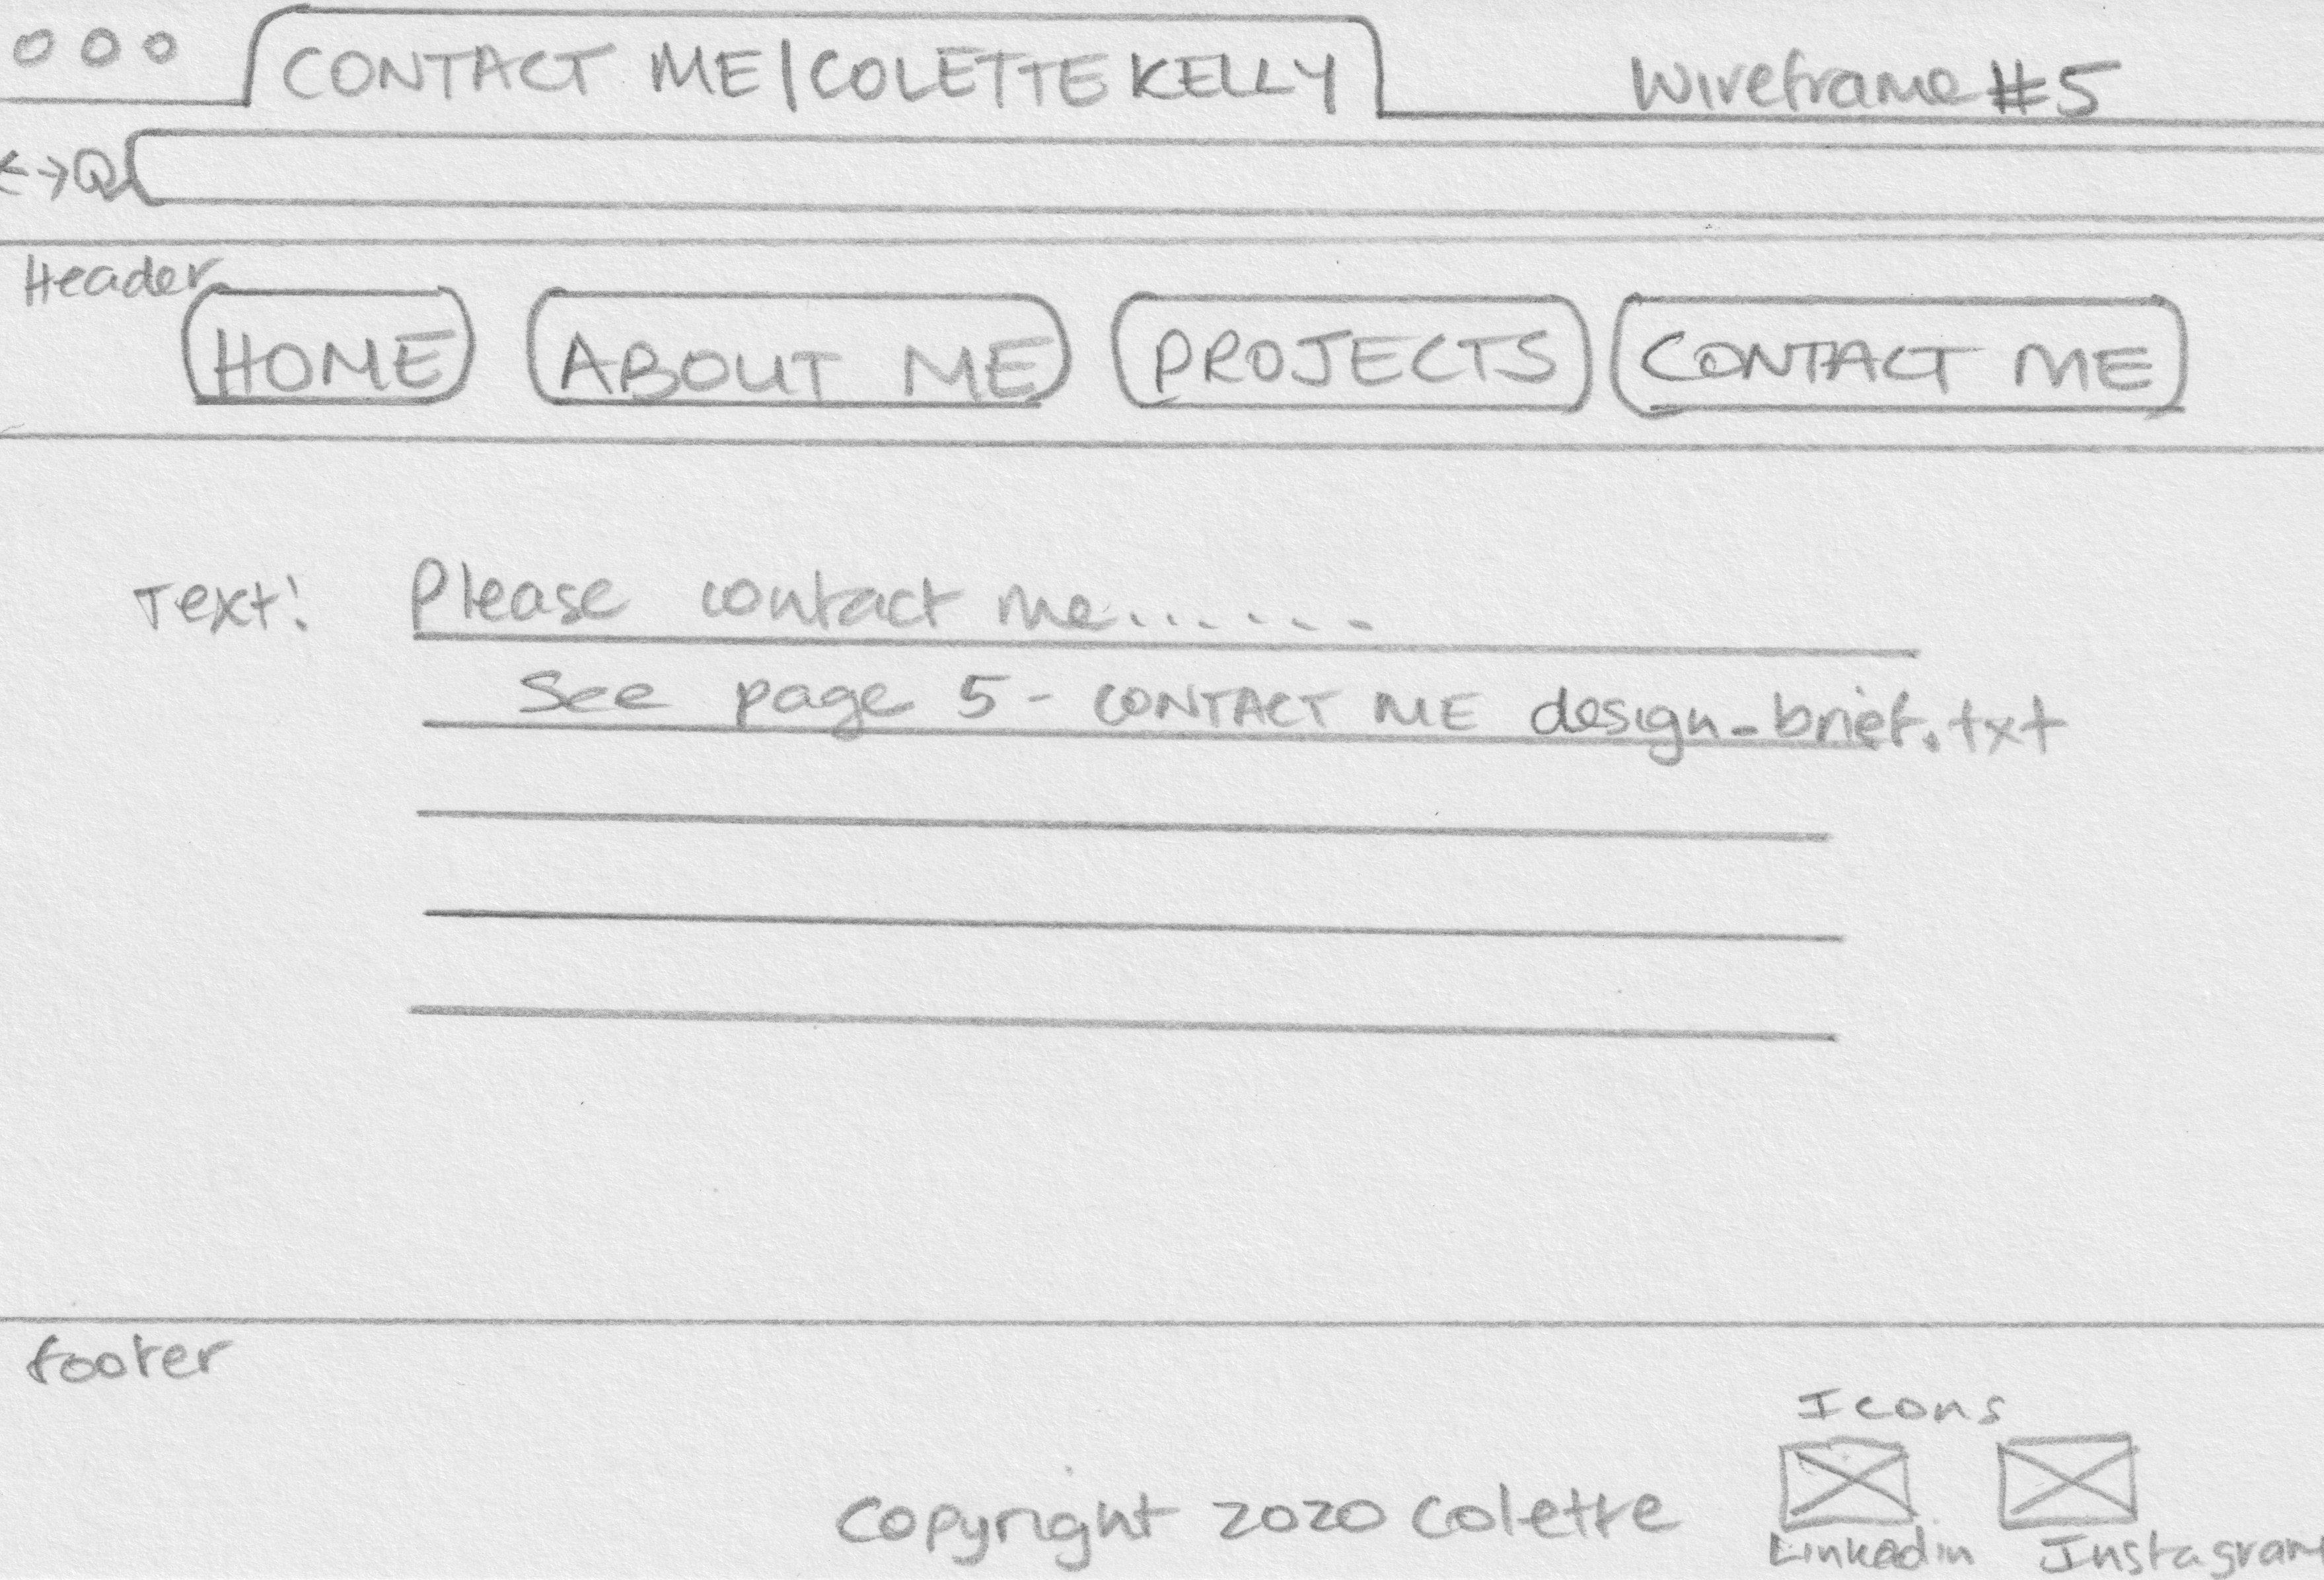 CONTACT ME | COLETTE KELLY
Wireframe #5
Header
HOME ABOUT ME PROJECTS CONTACT ME
Text: Please contact me.......
See page 5 - CONTACT ME design-brief.txt
footer
Icons
Copyright 2020 Colette
Linkedin Instagram